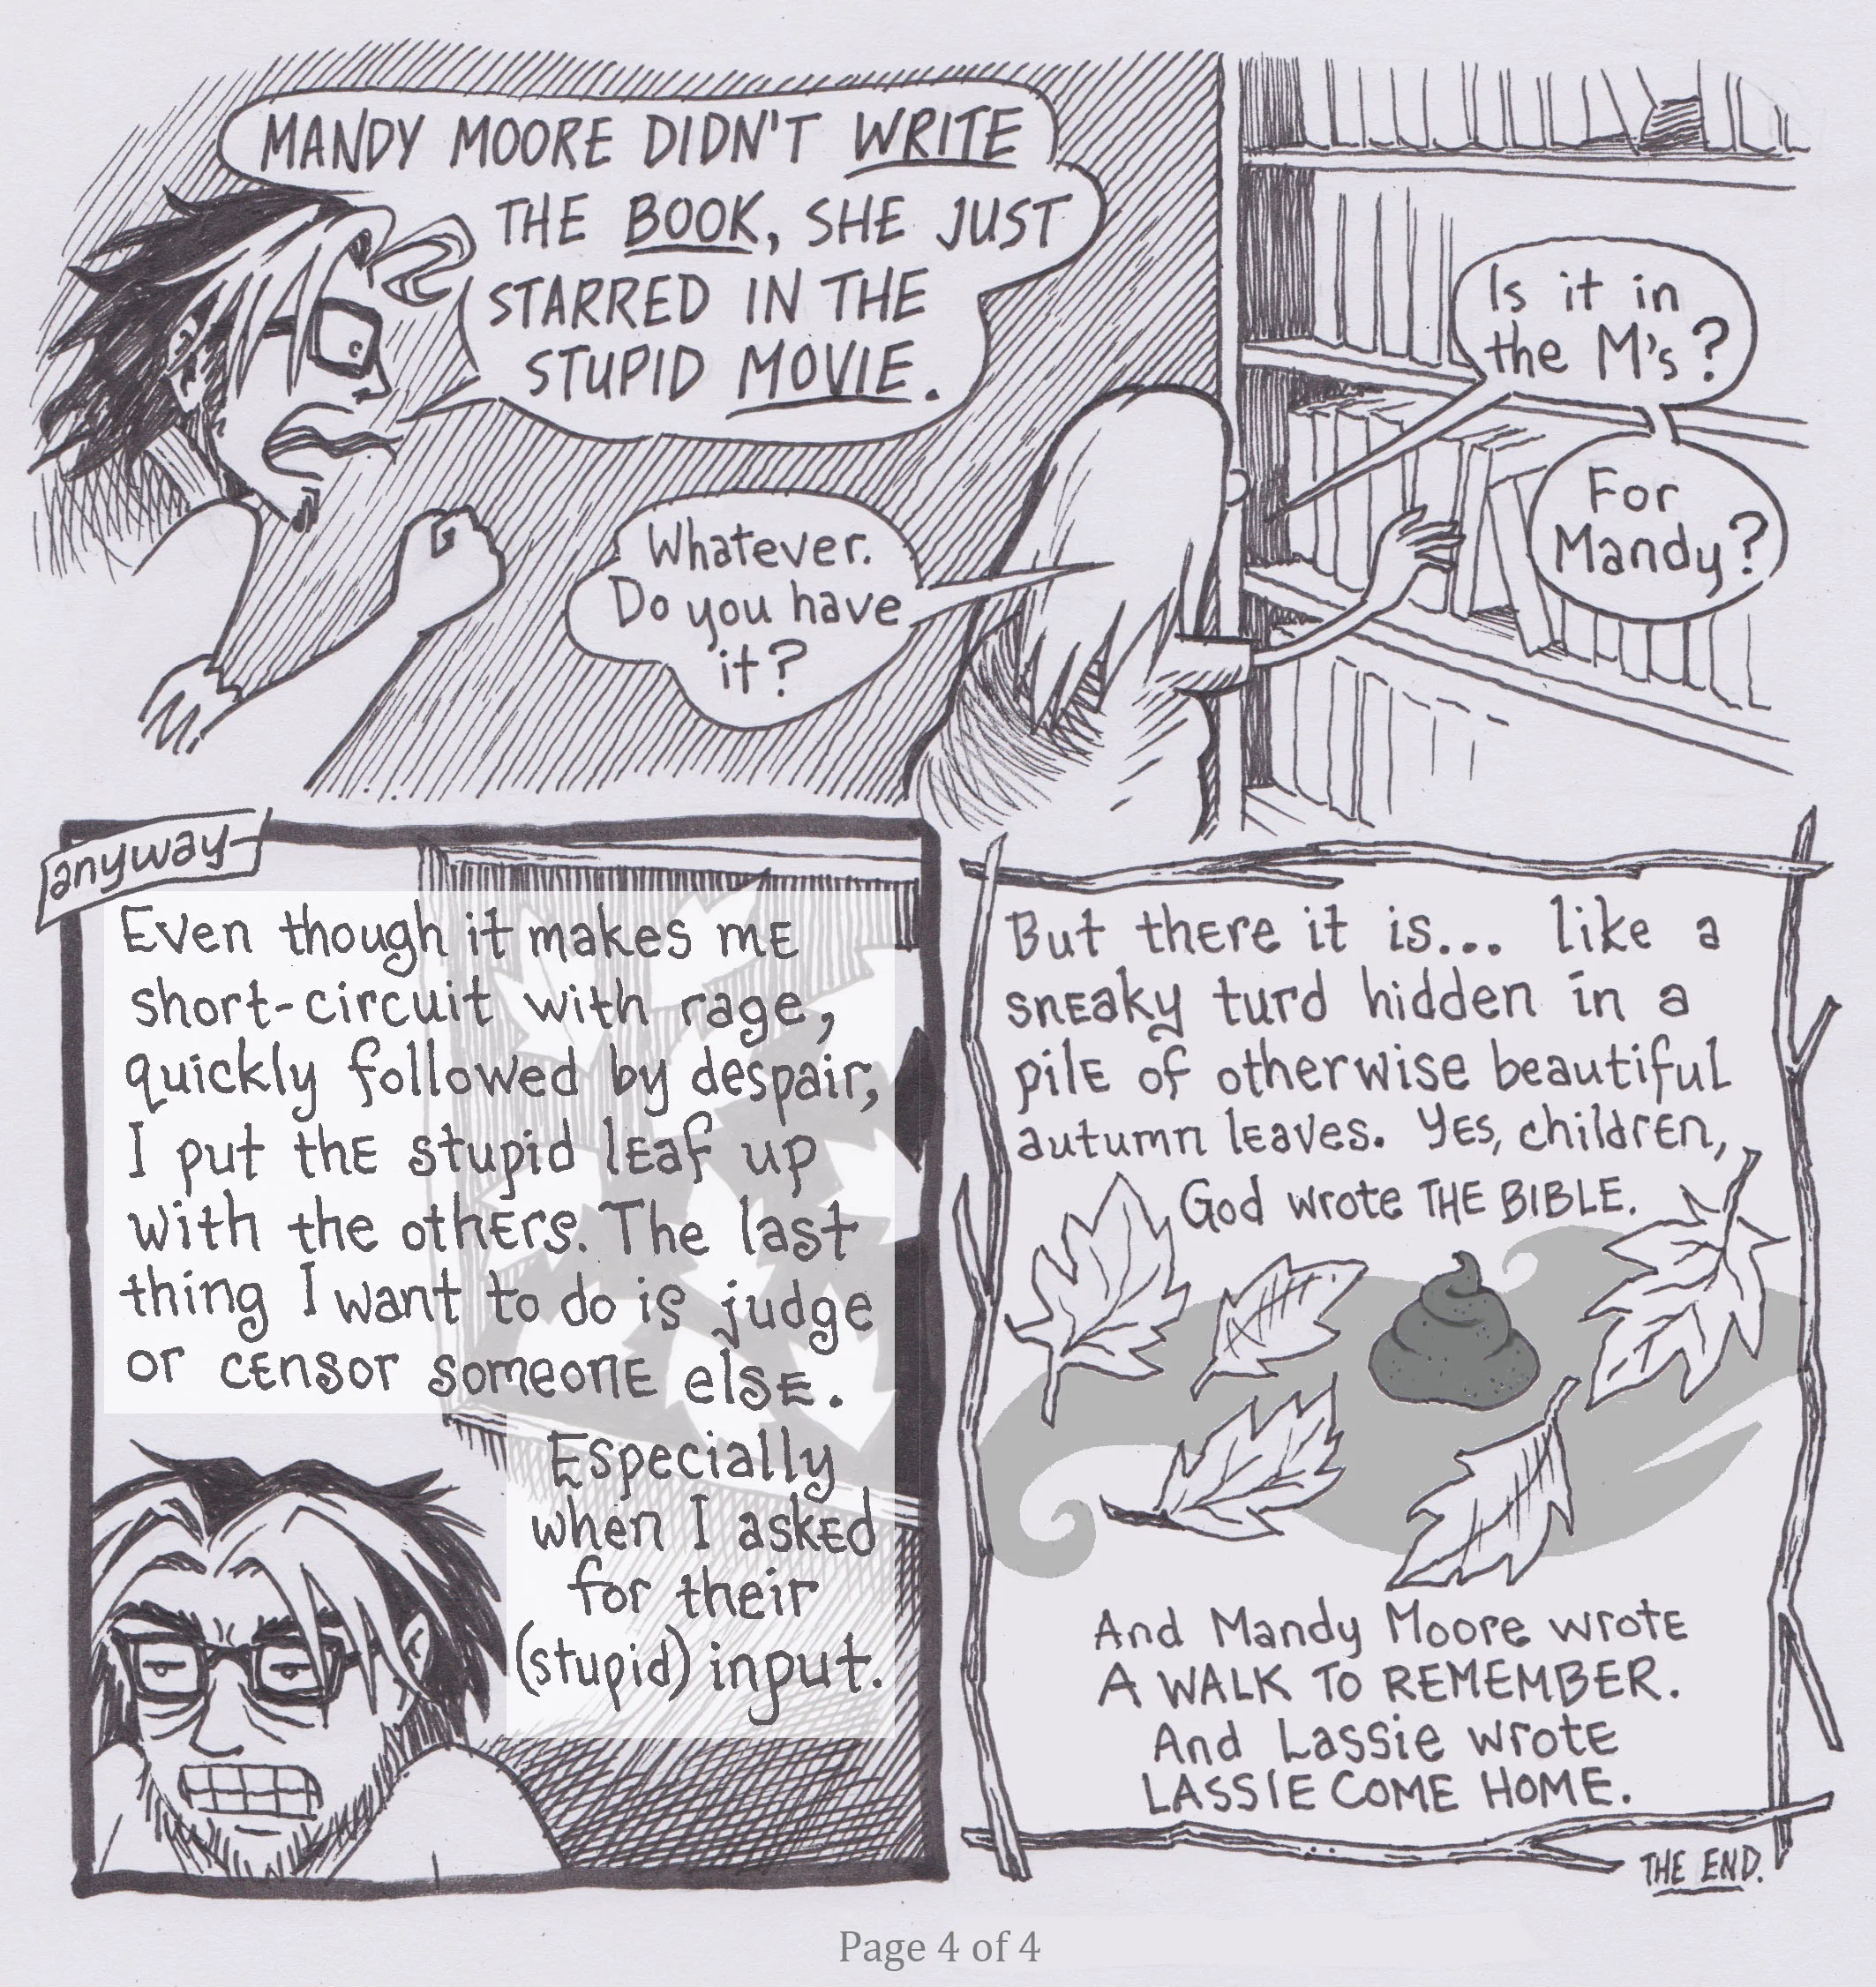 MANDY MOORE DIDN'T WRITE
THE BOOK, SHE JUST
STARRED IN THE
STUPID MOVIE.
Whatever.
Do you have
it?
Is it in
the M's?
For
Mandy?
anyway-
Even though it makes me
short-circuit with rage,
quickly followed by despair,
I put the stupid leaf up
with the others. The last
thing I want to do is judge
or censor someone else.
Especially
when I asked
for their
(stupid) input.
But there it is... like a
sneaky turd hidden in a
pile of otherwise beautiful
autumn leaves. Yes, children,
God wrote THE BIBLE.
And Mandy Moore wrote
A WALK TO REMEMBER.
And Lassie wrote
LASSIE COME HOME.
THE END.
Page 4 of 4